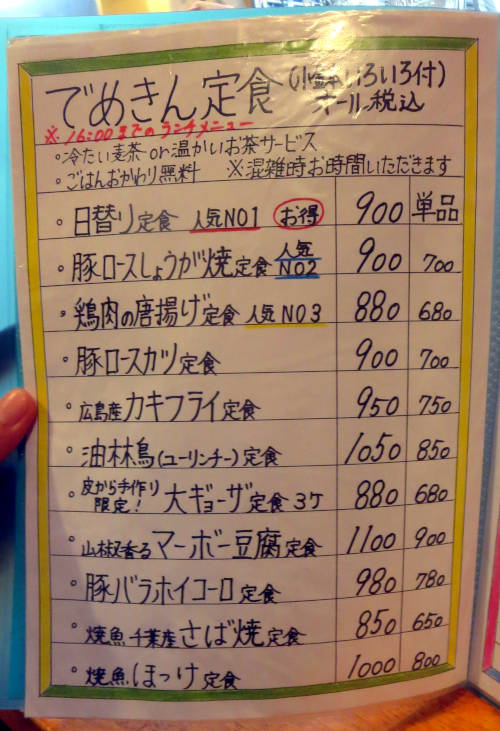 でめきん定食(小鉢いろいろ付)
オール税込
※16:00までのランチメニュー
・冷たい麦茶or温かいお茶サービス
・ごはんおかわり無料 ※混雑時お時間いただきます
・日替り定食 人気NO1 お得 900 単品
・豚ロースしょうが焼定食 人気NO2 900 700
・鶏肉の唐揚げ定食 人気NO3 880 680
・豚ロースカツ定食 900 700
・広島産カキフライ定食 950 750
・油林鳥(ユーリンチー)定食 1050 850
・皮から手作り限定!大ギョーザ定食3ケ 880 680
・山椒香るマーボー豆腐定食 1100 900
・豚バラホイコーロ定食 980 780
・焼魚千葉産さば焼定食 850 650
・焼魚ほっけ定食 1000 800